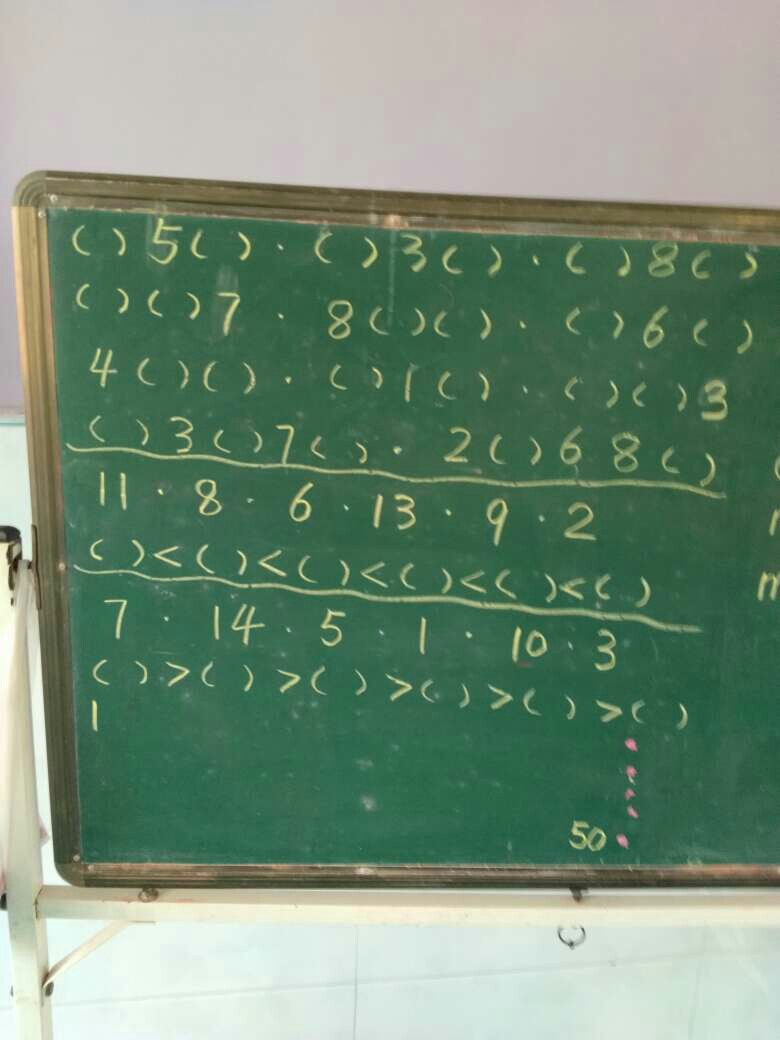 ( ) 5 ( ) . ( ) 3 ( ) . ( ) 8 ( )
( ) ( ) 7 . 8 ( ) ( ) . ( ) 6 ( )
4 ( ) ( ) . ( ) 1 ( ) . ( ) ( ) 3
( ) 3 ( ) 7 ( ) . 2 ( ) 6 8 ( )
11 . 8 . 6 . 13 . 9 . 2
( ) < ( ) < ( ) < ( ) < ( ) < ( )
7 . 14 . 5 . 1 . 10 . 3
( ) > ( ) > ( ) > ( ) > ( ) > ( )
1
50